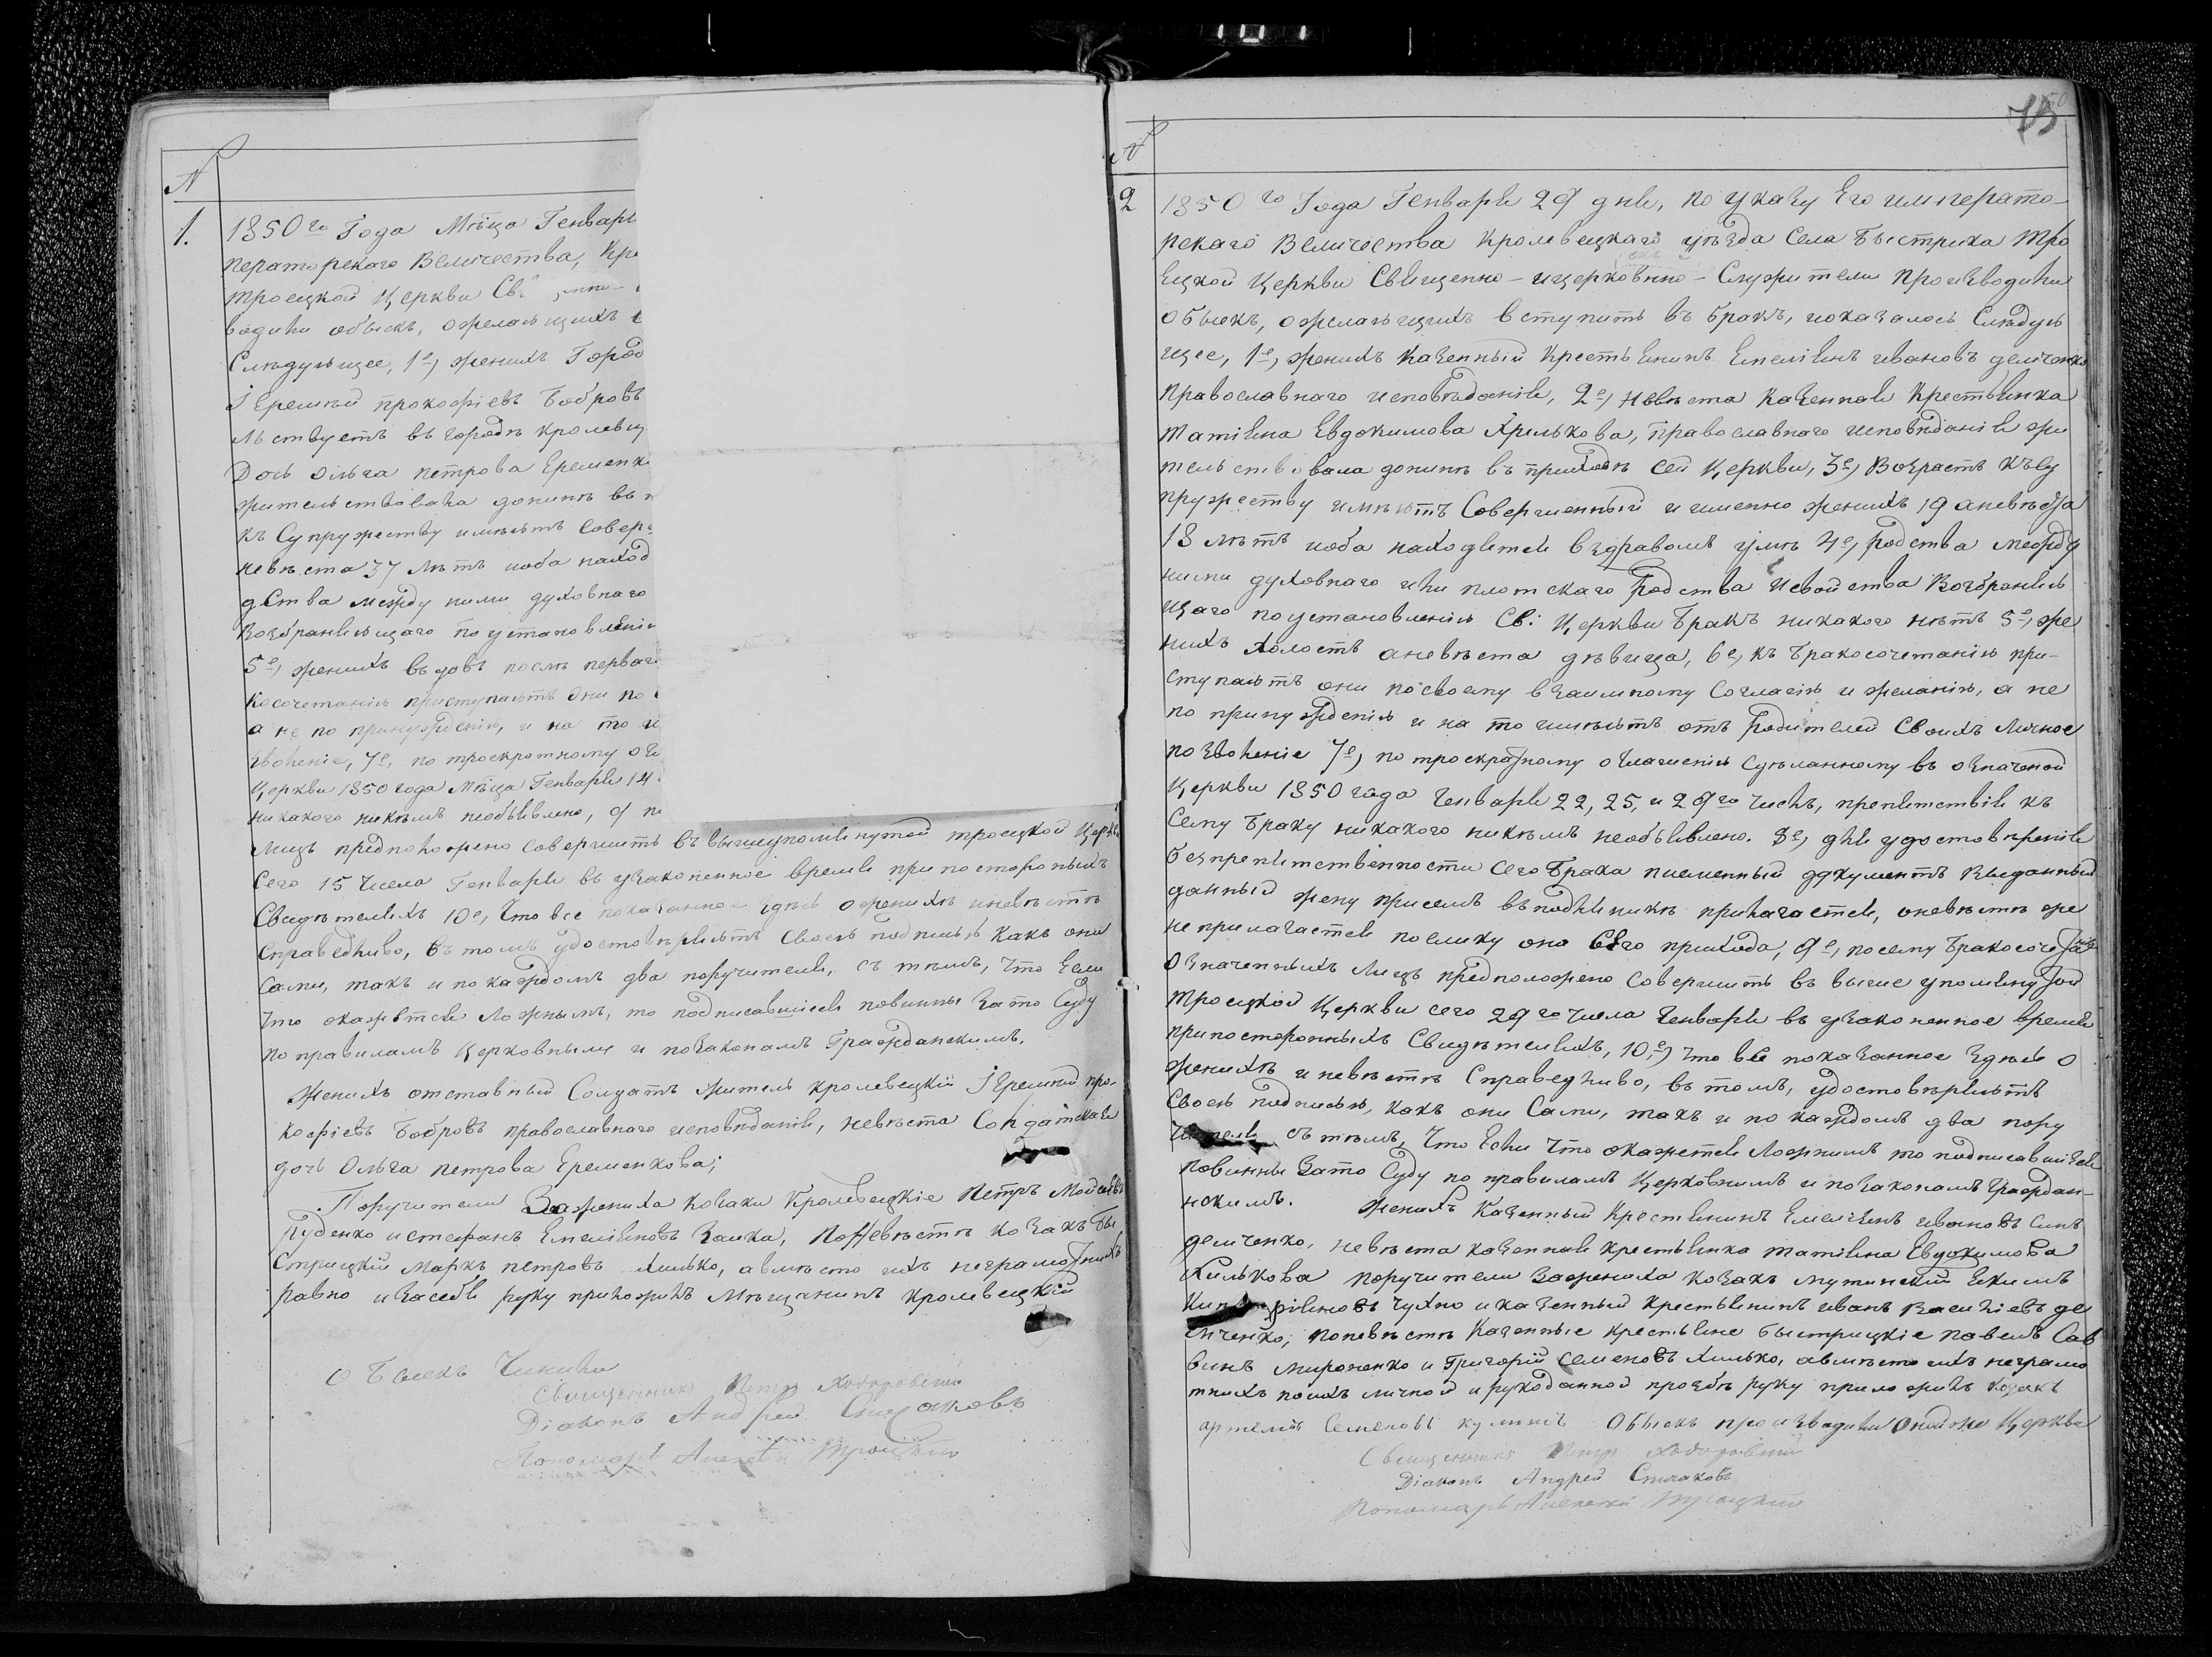 №
1.
1850го Года Мѣца Генваря
ператорскаго Величества, Кро
троецкой Церкви Св
водили обыскъ, ожелающихъ
Слѣдующее, 1е, женихъ Город
Іеремѣй прокофіевъ Бобровъ
льствуетъ въ городѣ кролевц
Дочь Ольга петрова Еременк
жительствовала донинѣ въ п
къ Супружеству имѣютъ Совер
невѣста 37 лѣтъ иоба наход
дства между ними духовнаго
Возбраняющаго по установленію
5е, женихъ вдовъ послѣ перваго
косочетанію приступаютъ они по
а не по принужденію, и на то и
зволеніе, 7е, по троекратному огл
Церкви 1850 года Мѣца Генваря 14
никакого никѣмъ необъявлено, 9 п
лицъ предположено совершить въ вышеупомянутой троецкой Церкви
Сего 15 Числа Генваря въ узаконенное время при постороныхъ
Свидѣтеляхъ 10е, Что все показанное здѣсь оженихѣ иневѣстѣ
справедливо, въ томъ удостовѣряютъ своею подписью Какъ они
Сами, такъ и по каждомъ два поручителя, съ тѣмъ, что Если
что окажется ложнымъ, то подписавшіеся повинны зато Суду
по правиламъ Церковнымъ и позаконамъ Гражданскимъ.
Женихъ отставный Солдатъ житель кролевецкій Іеремѣй про-
кофіевъ Бобровъ православнаго исповѣданія, невѣста Солдатская
дочь Ольга петрова Еременкова;
Поручители Зажениха козаки Кролевецкіе Петръ Мойсеевъ
Руденко истефанъ Емеліяновъ Заика, Поневѣстѣ козакъ Бы
стрицкій Марко петровъ Хилько, авмѣсто ихъ неграмотныхъ
равно изасебя руку приложилъ Мѣщанинъ кролевецкій
Обыскъ Чинили
Священникъ Петръ Ходоровскій
Діаконъ Андрей Спичаковъ
Пономарь Алексѣй Троцкій
75
№
2
1850го Года Генваря 29 дня, по указу Его императо-
рскаго Величества Кролевецкаго уѣзда Села Быстрика Тро
ецкой Церкви Священно-ицерковно-Служители производили
обыскъ, ожелающихъ вступить въ бракъ, иоказалось Слѣдую
щее, 1е, женихъ Казенный Крестьянинъ Емеліянъ ивановъ демченко
Православнаго исповѣданія, 2е, Невѣста Казенная Крестьянка
Татіяна Евдокимова Хилькова, православнаго исповѣданія жи
тельствовала донинѣ въ приходѣ сей Церкви, 3е, Возрастъ къСу
пружеству имѣютъ Совершенный и именно женихъ 19 аневѣста
18 лѣтъ иоба находятся въздравомъ умѣ 4е, родства между
ними духовнаго или плотскаго родства исвойства Возбраняю
щаго поустановленію Св: Церкви Бракъ никакого нѣтъ 5е, же
нихъ холостъ аневѣста дѣвица, 6е, къ бракосочетанію при-
ступаютъ они посвоему взаимному Согласію и желанію, а не
по принужденію и на то имѣютъ отъ родителей Своихъ личное
позволеніе 7е, по троекратному оглашенію Сдѣланному въ означеной
Церкви 1850 года Генваря 22, 25, и 29го Чиселъ, препятствія къ
Сему Браку никакого никѣмъ необъявлено. 8е, для удостовѣренія
безпрепятственности сего Брака писменный документъ выданный
данный жену присемъ въподлинникѣ прилагается, оневѣстѣ же
неприлагается поелику она сего прихода, 9е, посему Бракосочетаніе
означенныхъ лицъ предположено Совершить въ выше упомянутой
Троецкой Церкви сего 29го Числа Генваря въ узаконенное время
припосторонныхъ Свидѣтеляхъ, 10е, что все показанное здѣсь о
женихѣ и невѣстѣ Справедливо, въ томъ, удостовѣряютъ
Своею подписью, какъ они Сами, такъ и по каждомъ два пору
чителя съ тѣмъ, Что Если Что окажется ложнымъ то подписавшіеся
повинны зато Суду по правиламъ Церковнымъ и позаконамъ граждан-
нскимъ. Женихъ Казенный Крестянинъ Емеліянъ ивановъ Синъ
демченко, невѣста казенная крестьянка татіяна Евдокимова
Хилькова поручители зажениха козакъ мутинскій Екимъ
ріяновъ Чухно и казенный крестьянинъ иванъ василіевъ де
мченко, поневѣстѣ Казенные крестьяне быстрицкіе павелъ Сав
винъ мироненко и Григорій семеновъ хилько, авмѣсто ихъ неграмо
тнихъ поихъ личной и рукоданной прозбѣ руку приложилъ козакъ
артемъ Семеновъ кулиничъ Обыскъ производили оной же Церкви
Священникъ Петръ Ходоровскій
Діаконъ Андрей Спичаковъ
Пономарь Алексѣй Троцкій